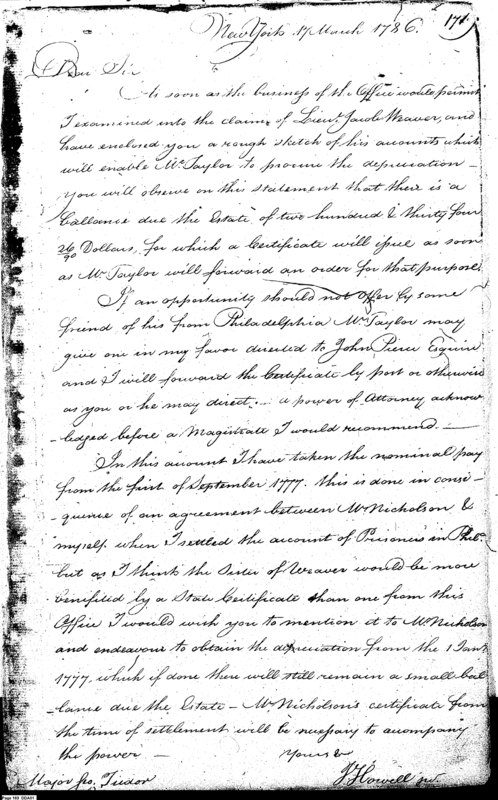 171
New York 17 March 1786.
Dear Sir
As soon as the business of the Office would permit
I examined into the claims of Lieut Jacob Weaver, and
have enclosed you a rough sketch of his accounts which
will enable Mr Taylor to procure the depreciation —
you will observe on this statement that there is a
ballance due the Estate of two hundred & thirty four
26/90 Dollars, for which a Certificate will issue as soon
as Mr Taylor will forward an order for that purpose
If an opportunity should not offer by some
friend of his from Philadelphia Mr Taylor may
give one in my favor directed to John Pierce Esquire
and I will forward the Certificate by post or otherwise
as you or he may direct. — a power of Attorney acknow
-ledged before a Magistrate I would recommend. —
In this account I have taken the nominal pay
from the first of September 1777. this is done in conse
-quence of an agreement between Mr Nicholson &
myself when I settled the account of Prisoners in Phila
but as I think the Sister of Weaver would be more
benefited by a State Certificate than one from this
Office I would wish you to mention it to Mr Nicholson
and endeavour to obtain the depreciation from the 1 Jany
1777. which if done there will still remain a small bal
-lance due the Estate — Mr Nicholson's certificate from
the time of settlement will be necessary to accompany
the power —
Yours &
J Howell jr.
Major Geo. Tudor
Page 169 DE/A01